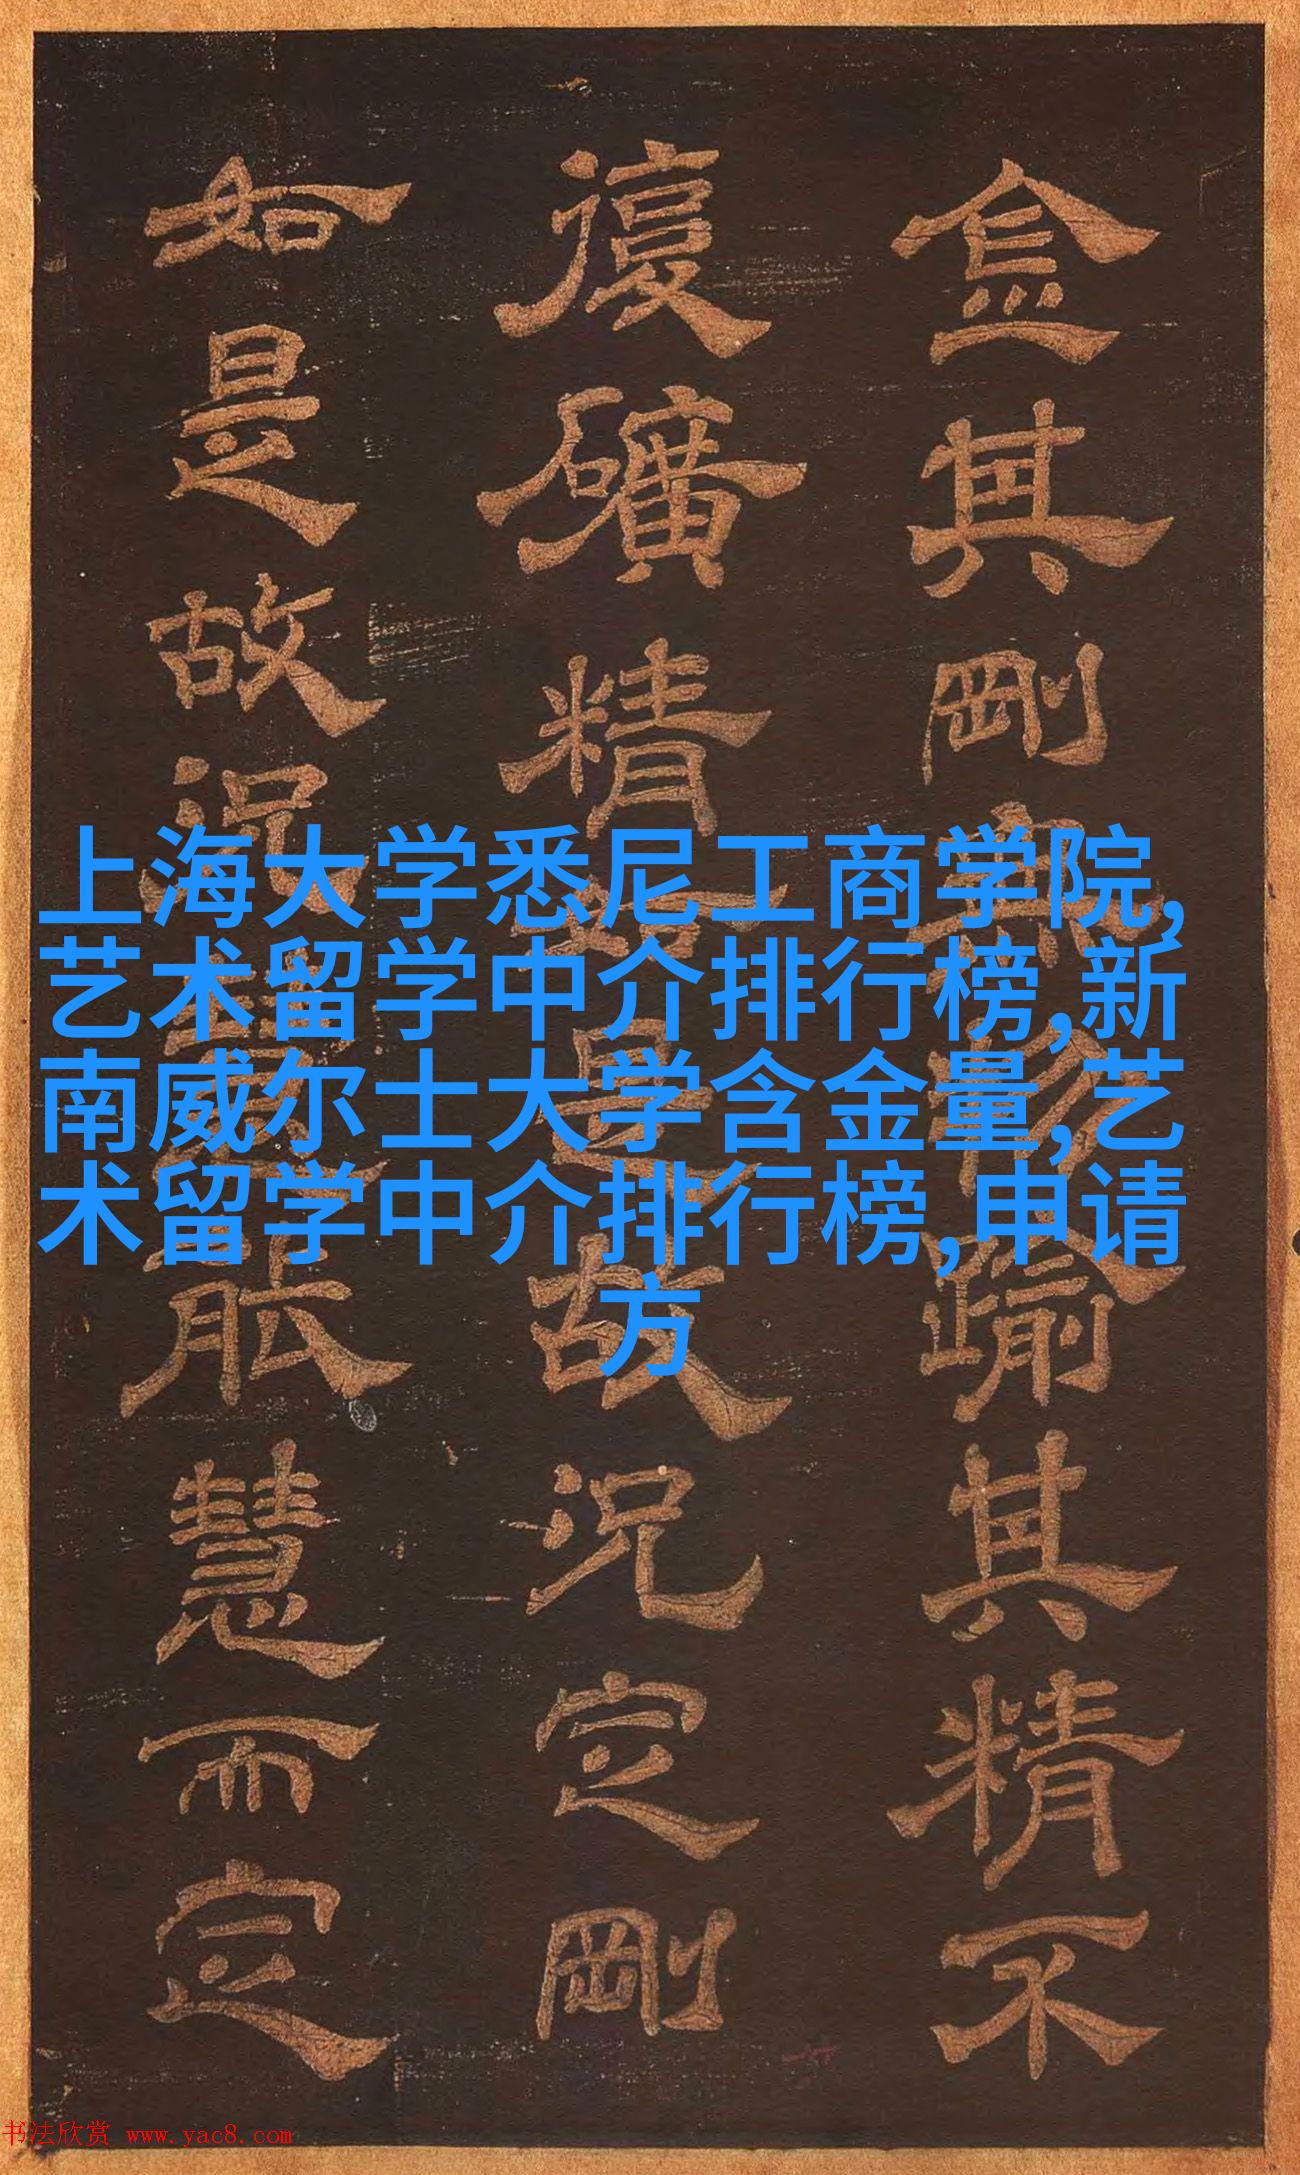 金其剛無踰其精不
復礦精始是故況定剛
如是故況賢能慧而定
上海大学悉尼工商学院,
艺术留学中介排行榜,新
南威尔士大学含金量,艺
术留学中介排行榜,申请
方
书法欣赏 www.yac8.com